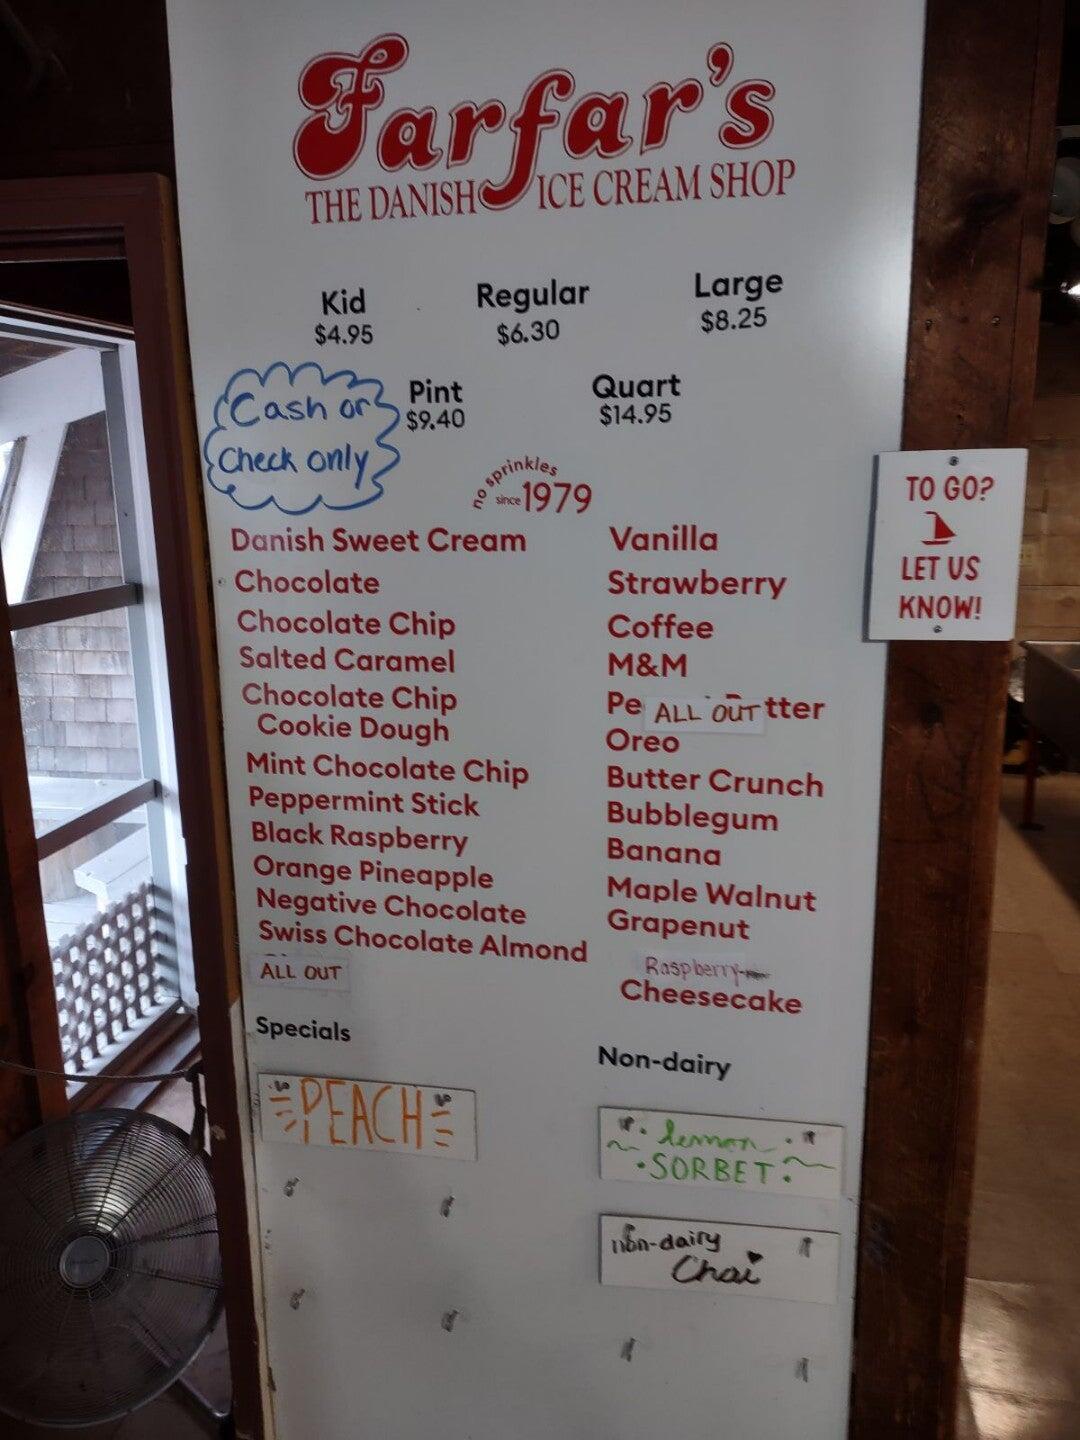 Farfar's
THE DANISH ICE CREAM SHOP
Kid
$4.95
Regular
$6.30
Large
$8.25
Pint
$9.40
Quart
$14.95
Cash or
Check only
no sprinkles
since 1979
Danish Sweet Cream
Chocolate
Chocolate Chip
Salted Caramel
Chocolate Chip
Cookie Dough
Mint Chocolate Chip
Peppermint Stick
Black Raspberry
Orange Pineapple
Negative Chocolate
Swiss Chocolate Almond
ALL OUT
Vanilla
Strawberry
Coffee
M&M
Pe ALL OUT tter
Oreo
Butter Crunch
Bubblegum
Banana
Maple Walnut
Grapenut
Raspberry
Cheesecake
Specials
PEACH
Non-dairy
lemon
SORBET
non-dairy
Chai
TO GO?
LET US
KNOW!